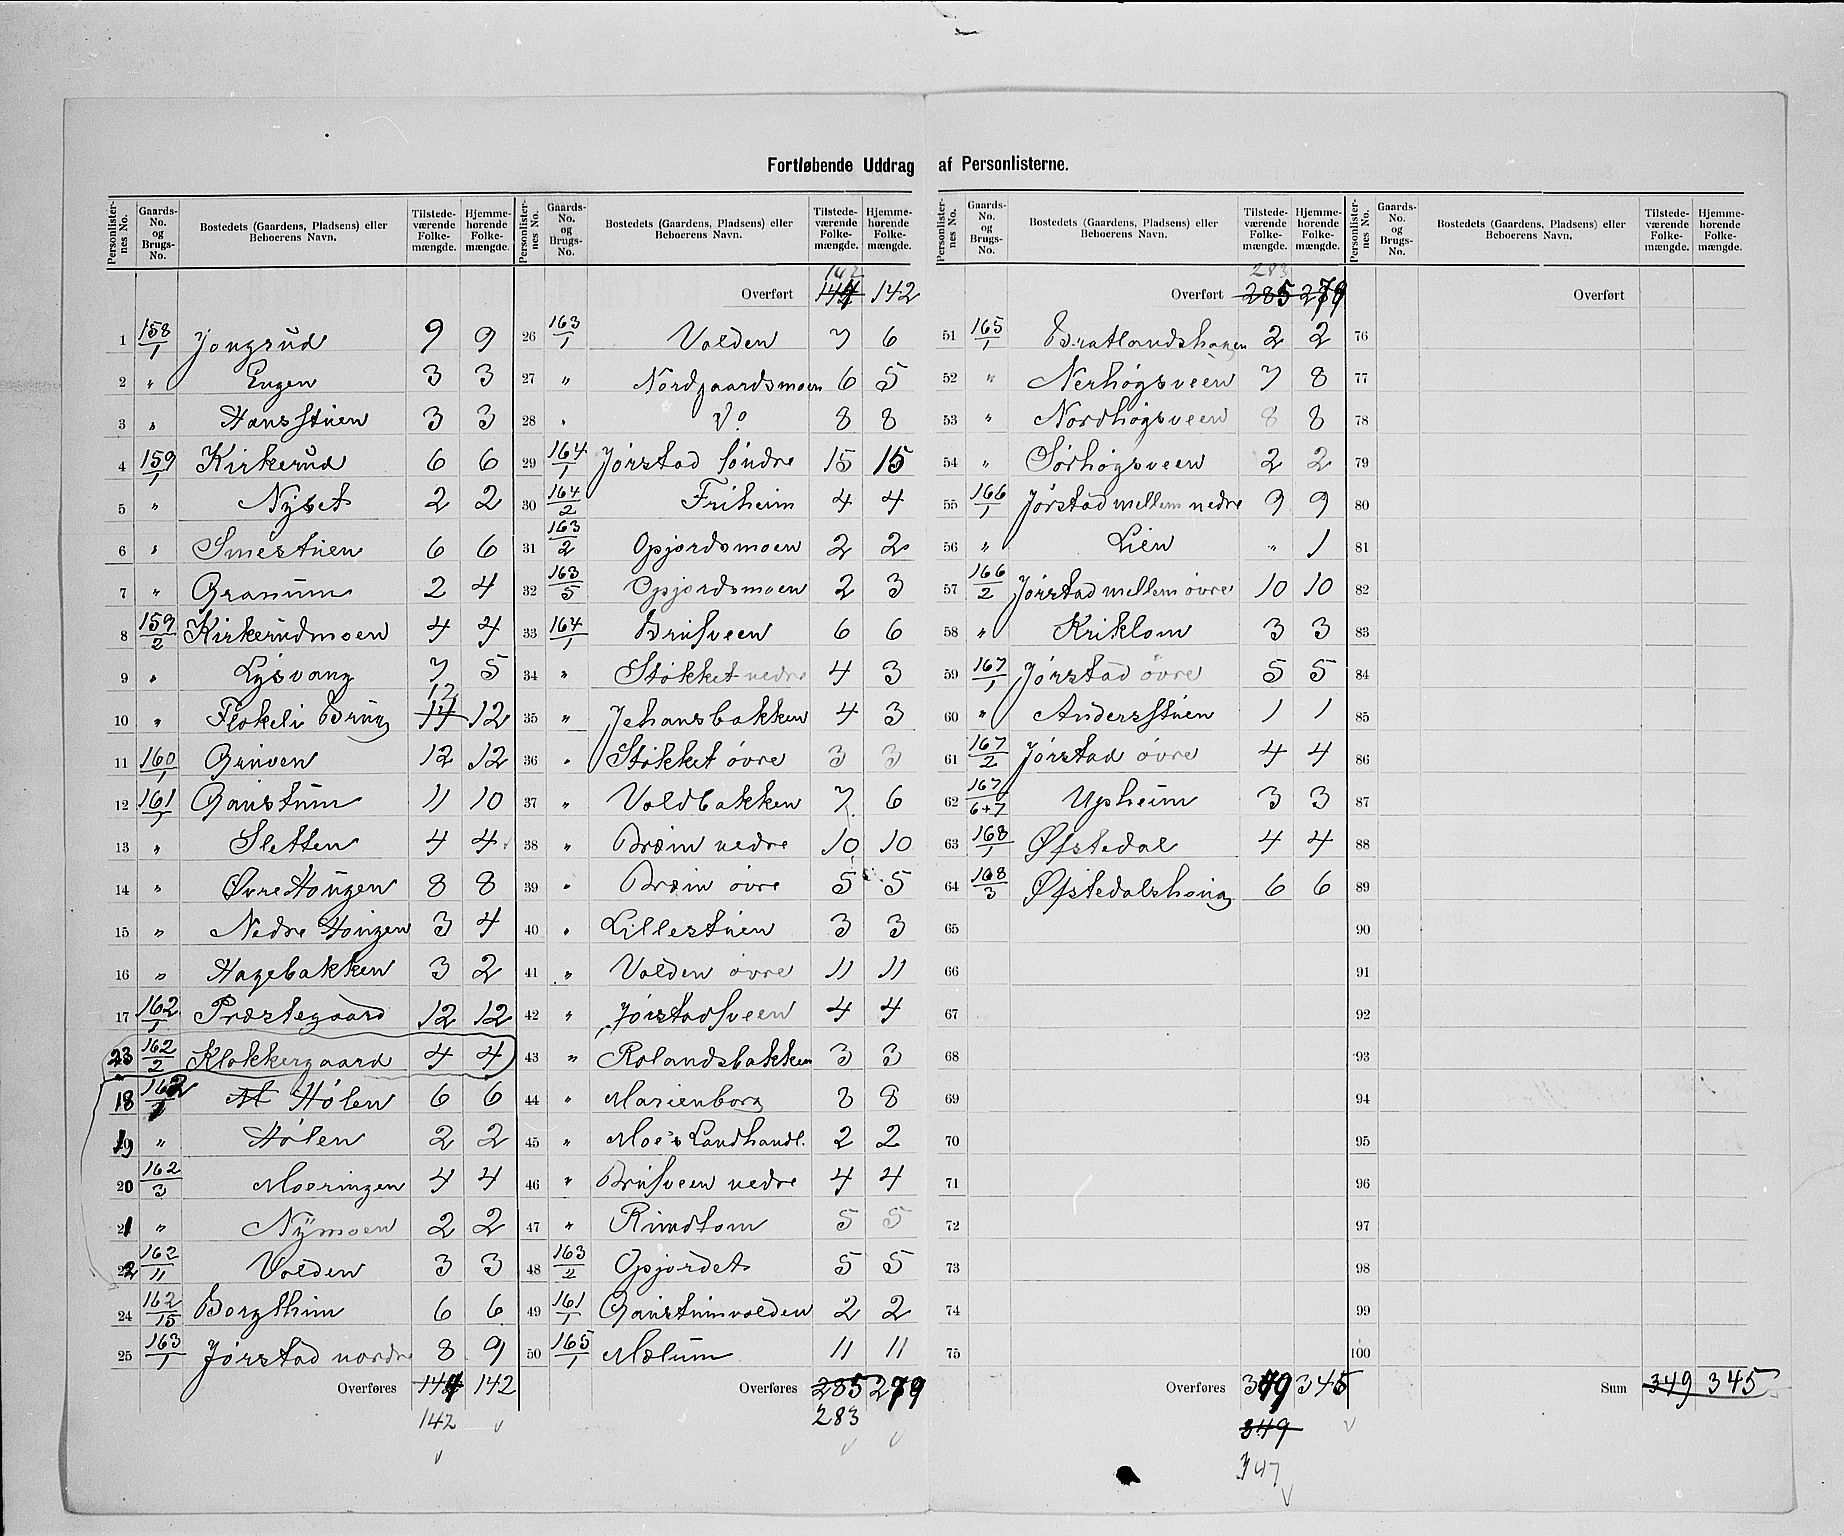 Fortløbende Uddrag af Personlisterne.
Personlister-nes No. | Gaards-No. og Brugs-No. | Bostedets (Gaardens, Pladsens) eller Beboerens Navn. | Tilstede-værende Folke-mængde. | Hjemme-hørende Folke-mængde.
1 158/1 Jongsrud 9 9
2 " Engen 3 3
3 " Hansstuen 3 3
4 159/1 Kirkerud 6 6
5 " Nyset 2 2
6 " Smestuen 6 6
7 " Granum 2 4
8 159/2 Kirkerudmoen 4 4
9 " Lysvang 7 5
10 " Flokeli Brug 14 12 12
11 160/1 Gruven 12 12
12 161/1 Gaustum 11 10
13 " Sletten 4 4
14 " Øvre Haugen 8 8
15 " Nedre Haugen 3 4
16 " Hagebakken 3 2
17 162/1 Præstegaard 12 12
23 162/2 Klokkergaard 4 4
18 162/1 Hølen 6 6
19 " Hølen 2 2
20 162/3 Moeringen 4 4
21 " Nymoen 2 2
22 162/11 Volden 3 3
24 162/15 Borgthim 6 6
25 163/1 Jørstad nordre 8 9
Overføres 144 142
142
Personlister-nes No. | Gaards-No. og Brugs-No. | Bostedets (Gaardens, Pladsens) eller Beboerens Navn. | Tilstede-værende Folke-mængde. | Hjemme-hørende Folke-mængde.
142
Overført 144 142
26 163/1 Volden 7 6
27 " Nordgaardsmoen 6 5
28 " Do 8 8
29 164/1 Jørstad søndre 15 15
30 164/2 Friheim 4 4
31 163/2 Opjordsmoen 2 2
32 163/5 Opjordsmoen 2 3
33 164/1 Brusveen 6 6
34 " Stokket nedre 4 3
35 " Johansbakken 4 3
36 " Stokket øvre 3 3
37 " Voldbakken 7 6
38 " Bræin nedre 10 10
39 " Bræin øvre 5 5
40 " Lillestuen 3 3
41 " Volden øvre 11 11
42 " Jørstadsveen 4 4
43 " Rolandsbakken 3 3
44 " Marienborg 8 8
45 " Moe's Landhandl. 2 2
46 " Brusveen nedre 4 4
47 " Rundtom 5 5
48 163/2 Opjordet 5 5
49 161/1 Gaustumvolden 2 2
50 165/1 Mælum 11 11
Overføres 285 279
283
Personlister-nes No. | Gaards-No. og Brugs-No. | Bostedets (Gaardens, Pladsens) eller Beboerens Navn. | Tilstede-værende Folke-mængde. | Hjemme-hørende Folke-mængde.
283
Overført 285 279
51 165/1 Bratlandshagen 2 2
52 " Nerhøgsveen 7 8
53 " Nordhøgsveen 8 8
54 " Sørhøgsveen 2 2
55 166/1 Jørstad mellem nedre 9 9
56 " Lien " 1
57 166/2 Jørstad mellem øvre 10 10
58 " Kriklom 3 3
59 167/1 Jørstad øvre 5 5
60 " Andersstuen 1 1
61 167/2 Jørstad øvre 4 4
62 167/6+7 Upsheim 3 3
63 168/1 Øfstedal 4 4
64 168/3 Øfstedalshaug 6 6
65
66
67
68
69
70
71
72
73
74
75
Overføres 349 345
349
347
Personlister-nes No. | Gaards-No. og Brugs-No. | Bostedets (Gaardens, Pladsens) eller Beboerens Navn. | Tilstede-værende Folke-mængde. | Hjemme-hørende Folke-mængde.
Overført
76
77
78
79
80
81
82
83
84
85
86
87
88
89
90
91
92
93
94
95
96
97
98
99
100
Sum 349 345